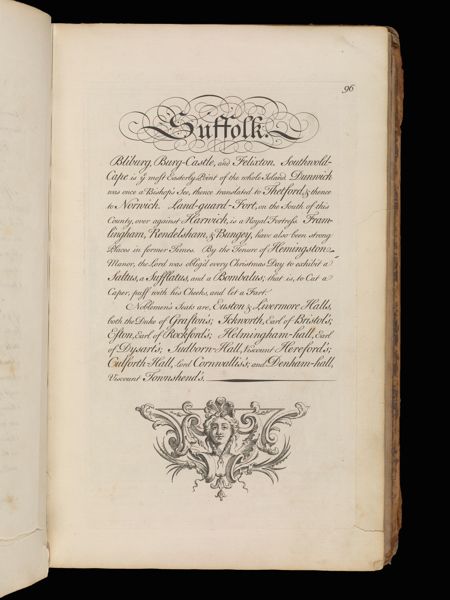 96
Suffolk.
Bliburg, Burg-Castle, and Felixton. Southwold-
Cape is ẏ most Easterly Point of the whole Island. Dunwich
was once a Bishops See, thence translated to Thetford, & thence
to Norwich. Land-guard-Fort, on the South of this
County, over against Harwich, is a Royal Fortress. Fram-
lingham, Rendelsham, & Bungey, have also been strong
Places in former Times. By the Tenure of Hemingston-
Manor, the Lord was oblig'd every Christmas Day to exhibit a
Saltus, a Sufflatus, and a Bombalus; that is, to Cut a
Caper, puff with his Cheeks, and let a Fart.
Noblemen's Seats are, Euston & Livermore Halls,
both the Duke of Grafton's; Ickworth, Earl of Bristol's;
Eston, Earl of Rochford's; Helmingham-hall, Earl
of Dysart's; Sudborn-Hall, Viscount Hereford's;
Culforth-Hall, Lord Cornwallis's; and Denham-hall,
Viscount Townshend's.